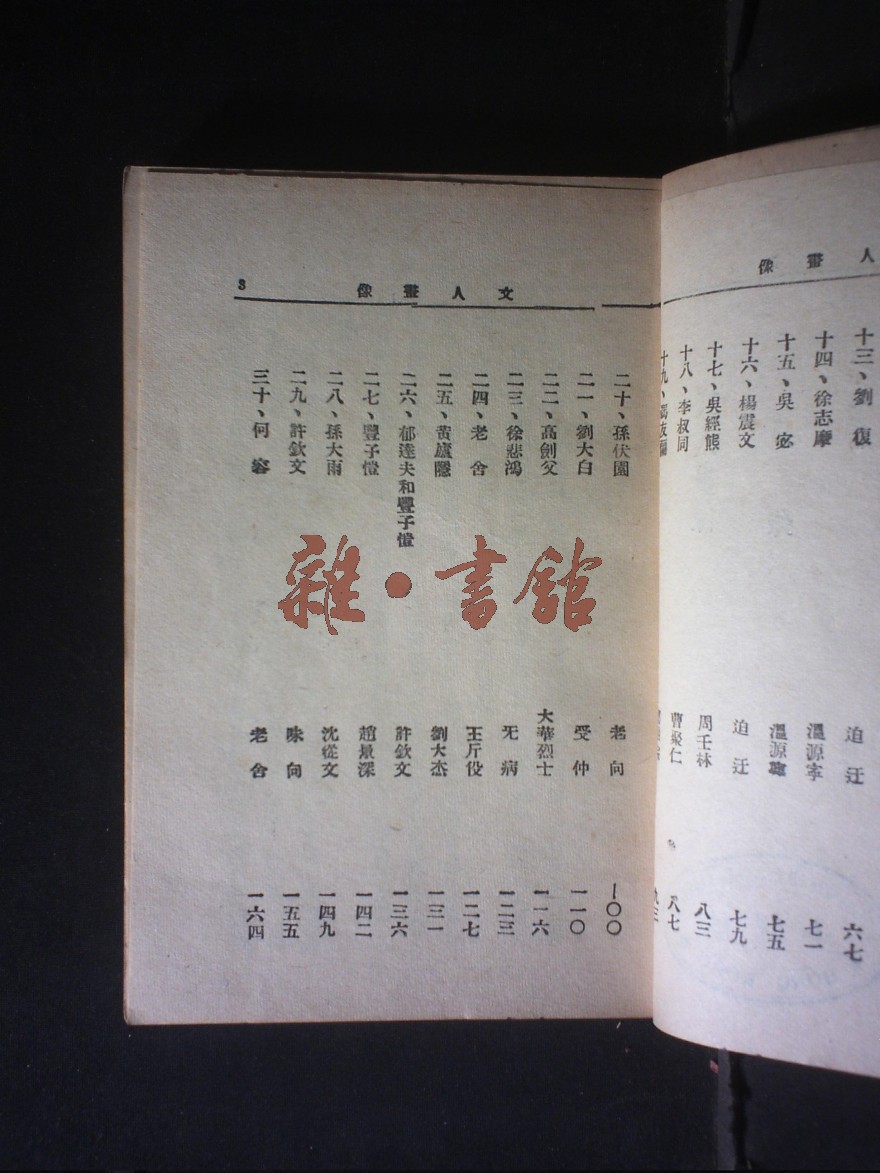 人畫像
十三、劉復 迫迂 六七
十四、徐志摩 溫源寧 七一
十五、吳宓 溫源寧 七五
十六、楊震文 迫迂 七九
十七、吳經熊 周壬林 八三
十八、李叔同 曹聚仁 八七
十九、
文人畫像
3
二十、孫伏園 老向 一〇〇
二一、劉大白 受仲 一一〇
二二、高劍父 大華烈士 一一六
二三、徐悲鴻 无病 一二三
二四、老舍 王斤役 一二七
二五、黃廬隱 劉大杰 一三一
二六、郁達夫和豐子愷 許欽文 一三六
二七、豐子愷 趙景深 一四二
二八、孫大雨 沈從文 一四九
二九、許欽文 味向 一五五
三十、何容 老舍 一六四
雜·書館